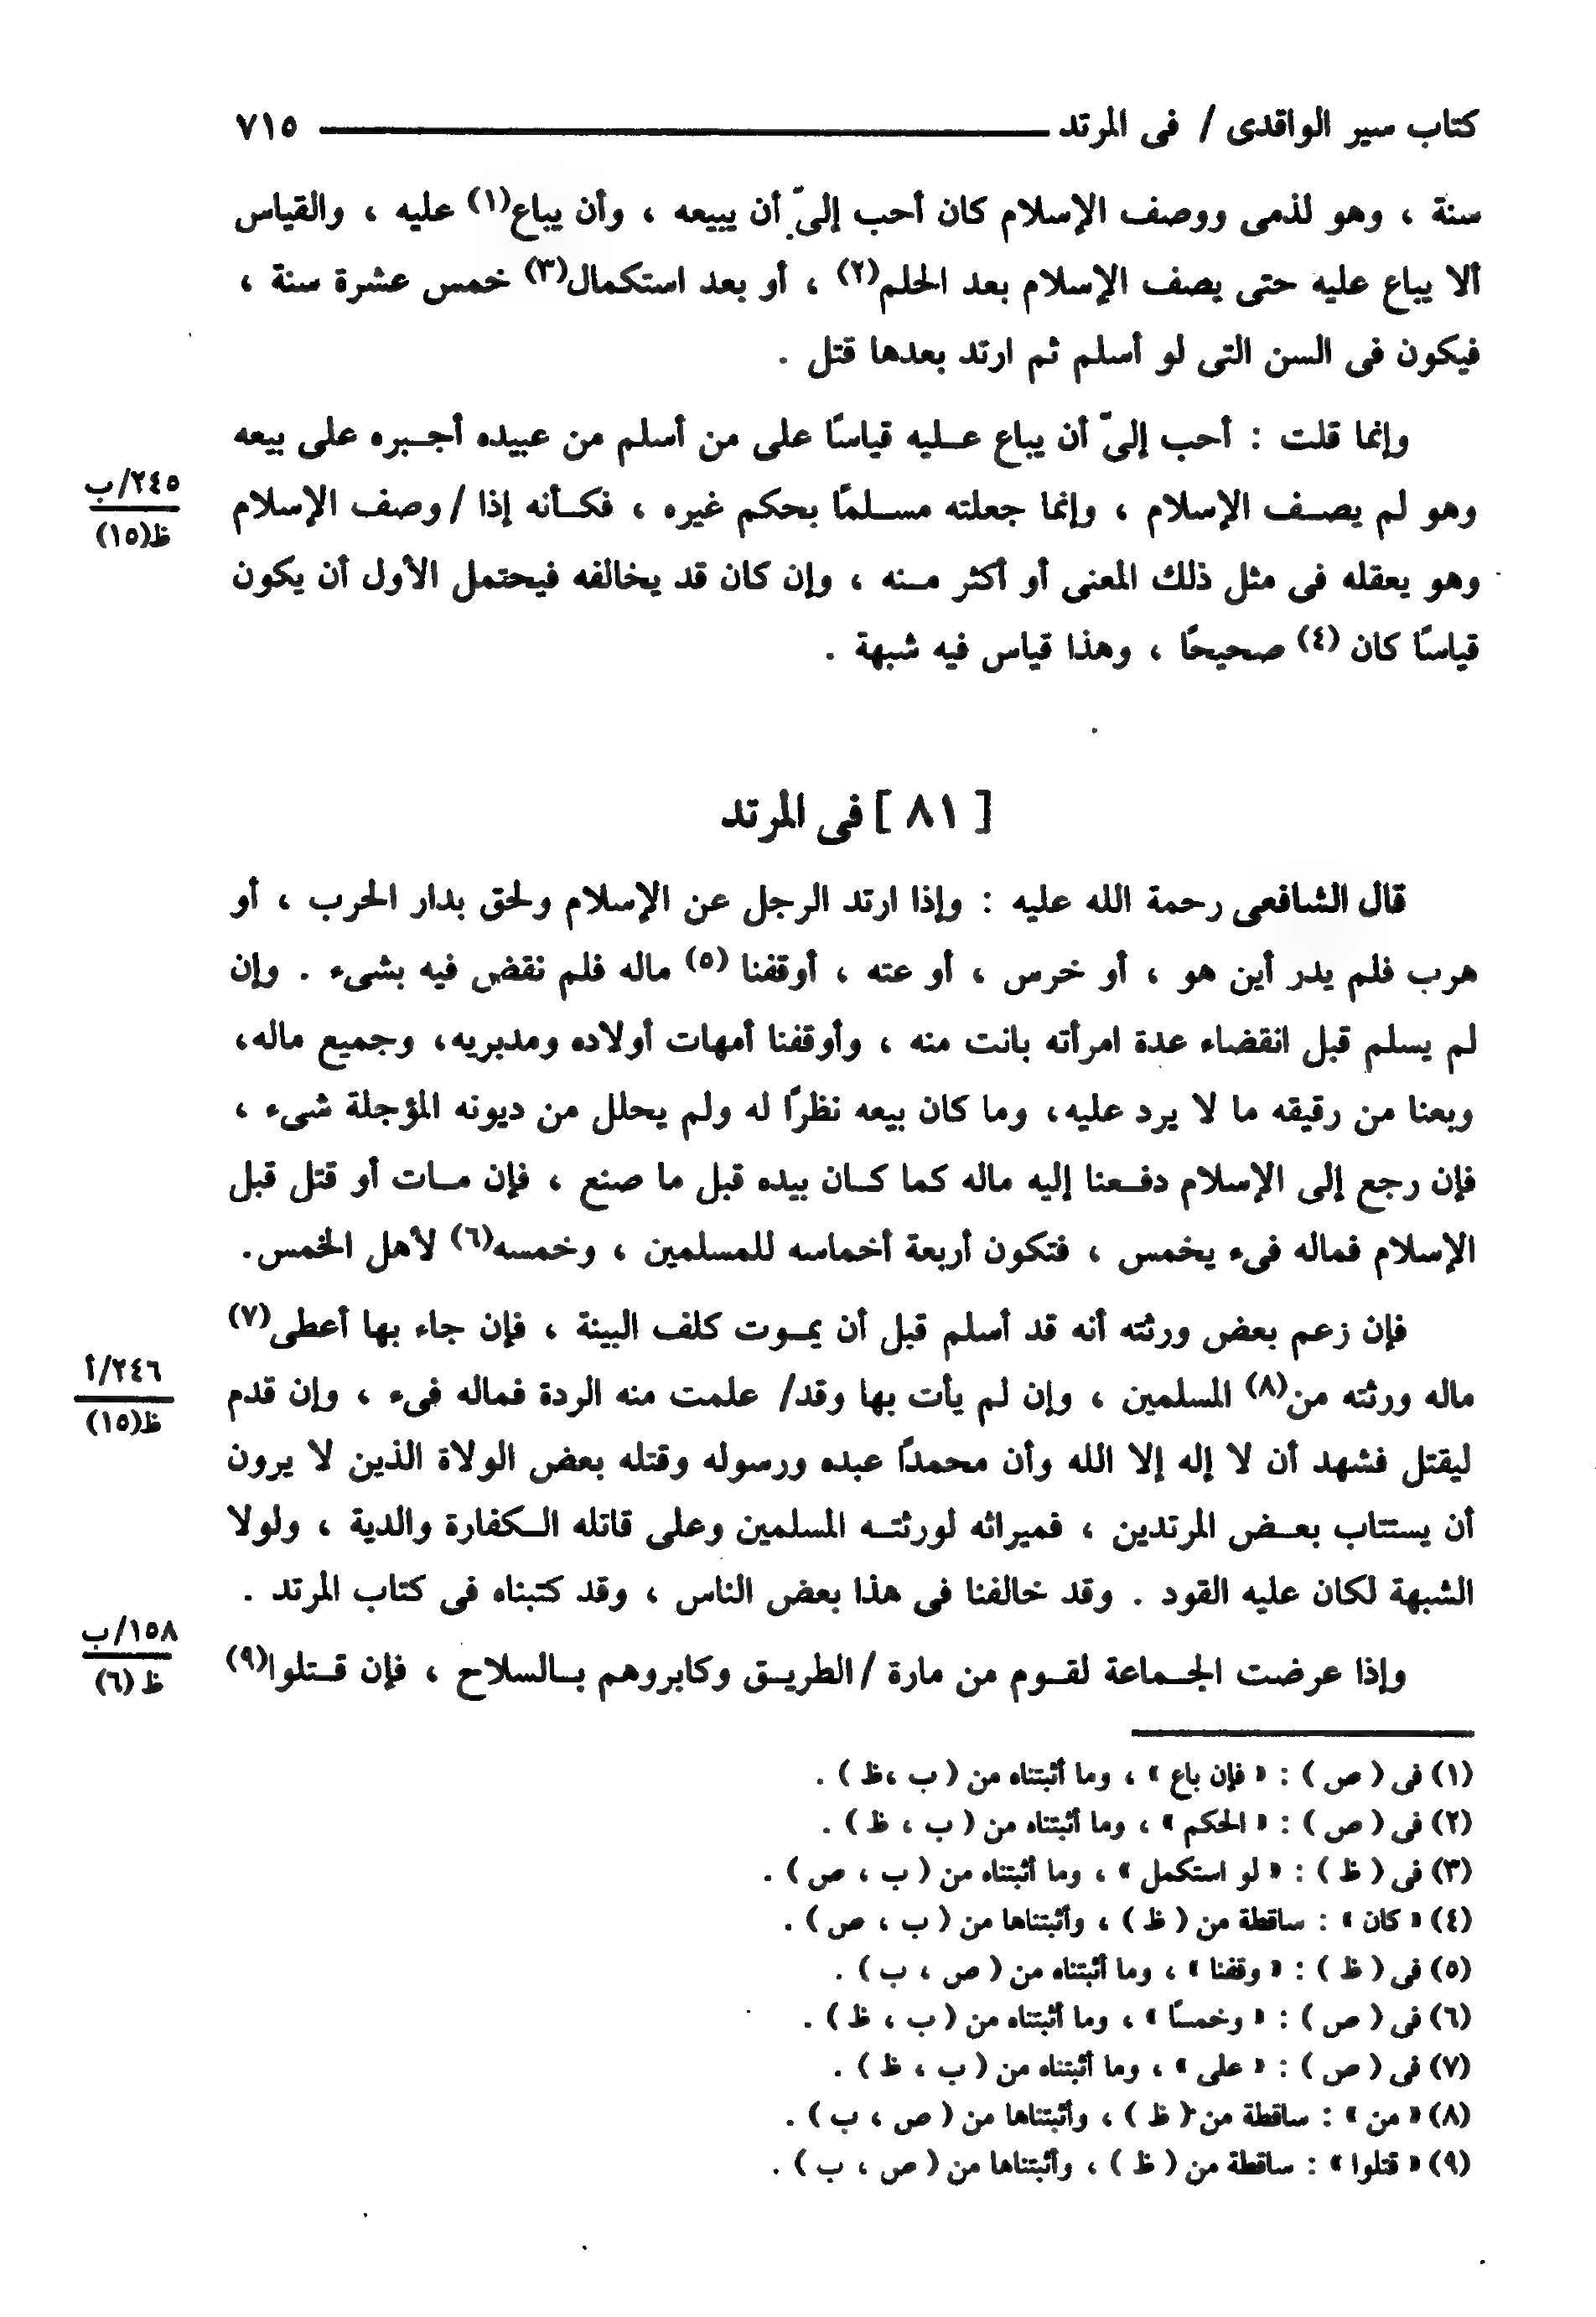 كتاب سير الواقدى / فى المرتد ٧١٥
سنة ، وهو لذمى ووصف الإسلام كان أحب إلىّ أن يبيعه ، وأن يباع(١) عليه ، والقياس
ألا يباع عليه حتى يصف الإسلام بعد الحلم(٢) ، أو بعد استكمال(٣) خمس عشرة سنة ،
فيكون فى السن التى لو أسلم ثم ارتد بعدها قتل .
وإنما قلت : أحب إلىّ أن يباع عـليه قياسًا على من أسلم من عبيده أجـبره على بيعه
٢٤٥/ب
وهو لم يصـف الإسلام ، وإنما جعلته مسـلمًا بحكم غيره ، فكـأنه إذا / وصف الإسلام
ظ(١٥)
وهو يعقله فى مثل ذلك المعنى أو أكثر مـنه ، وإن كان قد يخالفه فيحتمل الأول أن يكون
قياسًا كان (٤) صحيحًا ، وهذا قياس فيه شبهة .
[ ٨١ ] فى المرتد
قال الشافعى رحمة الله عليه : وإذا ارتد الرجل عن الإسلام ولحق بدار الحرب ، أو
هرب فلم يدر أين هو ، أو خرس ، أو عته ، أوقفنا (٥) ماله فلم نقض فيه بشىء . وإن
لم يسلم قبل انقضاء عدة امرأته بانت منه ، وأوقفنا أمهات أولاده ومدبريه، وجميع ماله،
وبعنا من رقيقه ما لا يرد عليه، وما كان بيعه نظرًا له ولم يحلل من ديونه المؤجلة شىء ،
فإن رجع إلى الإسلام دفـعنا إليه ماله كما كـان بيده قبل ما صنع ، فإن مـات أو قتل قبل
الإسلام فماله فىء يخمس ، فتكون أربعة أخماسه للمسلمين ، وخمسه(٦) لأهل الخمس.
فإن زعم بعض ورثته أنه قد أسلم قبل أن يمـوت كلف البينة ، فإن جاء بها أعطى(٧)
٢٤٦/أ
ماله ورثته من(٨) المسلمين ، وإن لم يأت بها وقد/ علمت منه الردة فماله فىء ، وإن قدم
ظ(١٥)
ليقتل فشهد أن لا إله إلا الله وأن محمدًا عبده ورسوله وقتله بعض الولاة الذين لا يرون
أن يستتاب بعـض المرتدين ، فميراثه لورثتـه المسلمين وعلى قاتله الـكفارة والدية ، ولولا
الشبهة لكان عليه القود . وقد خالفنا فى هذا بعض الناس ، وقد كتبناه فى كتاب المرتد .
١٥٨/ب
وإذا عرضت الجـماعة لقـوم من مارة / الطريـق وكابروهم بـالسلاح ، فإن قـتلوا(٩)
ظ (٦)
(١) فى ( ص ) : « فإن باع » ، وما أثبتناه من ( ب ،ظ ) .
(٢) فى ( ص ) : « الحكم » ، وما أثبتناه من ( ب ، ظ ) .
(٣) فى ( ظ ) : « لو استكمل » ، وما أثبتناه من ( ب ، ص ) .
(٤) « كان » : ساقطة من ( ظ ) ، وأثبتناها من ( ب ، ص ) .
(٥) فى ( ظ ) : « وقفنا » ، وما أثبتناه من ( ص ، ب ) .
(٦) فى ( ص ) : « وخمسًا » ، وما أثبتناه من ( ب ، ظ ) .
(٧) فى ( ص ) : « على » ، وما أثبتناه من ( ب ، ظ ) .
(٨) « من » : ساقطة من ( ظ ) ، وأثبتناها من ( ص ، ب ) .
(٩) « قتلوا » : ساقطة من ( ظ ) ، وأثبتناها من ( ص ، ب ) .